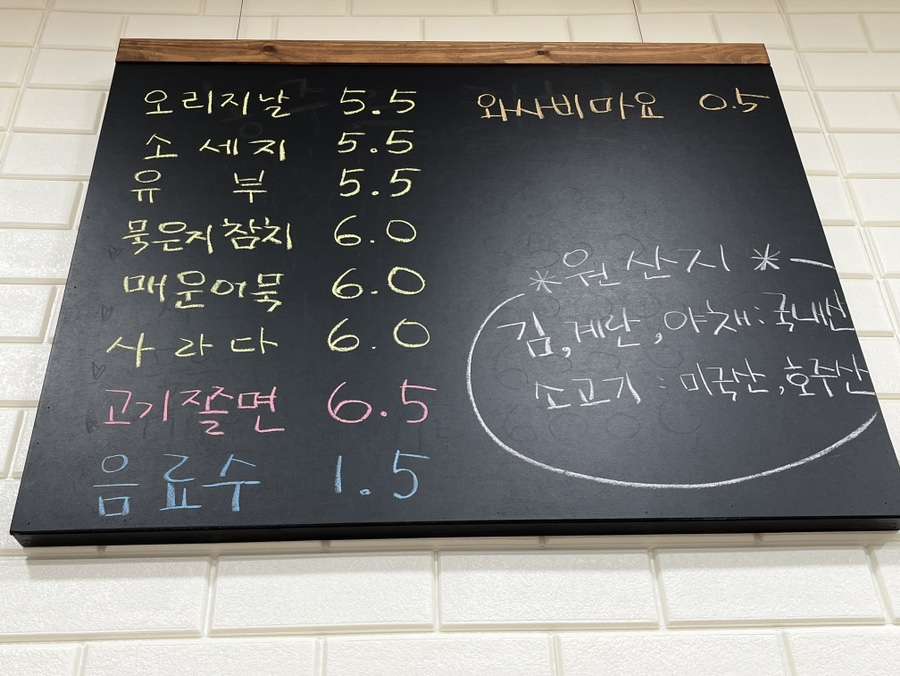 오리지날 5.5
소세지 5.5
유부 5.5
묵은지참치 6.0
매운어묵 6.0
사라다 6.0
고기쫄면 6.5
음료수 1.5
와사비마요 0.5
*원산지*
김,계란,야채:국내산
소고기:미국산,호주산